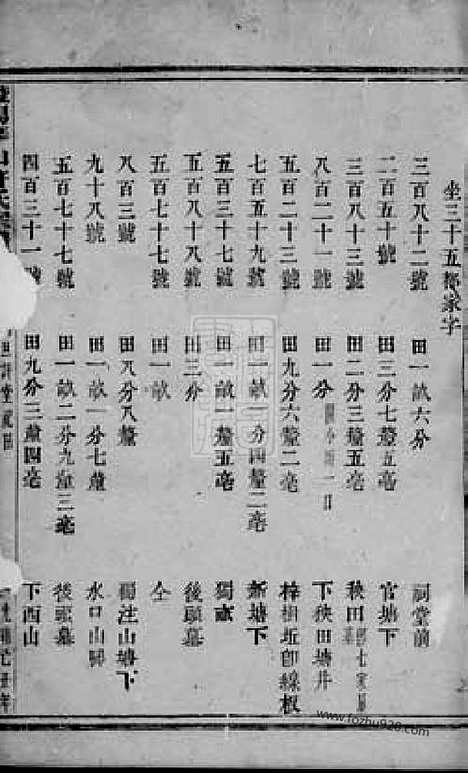 坐三十五都家字
三百八十二號 田一畝六分 祠堂前
二百五十號 田三分七釐五毫 官塘下
三百八十三號 田二分三釐五毫 秧田
八百二十一號 田一分 下秧田塘丼
五百二十三號 田九分六釐二毫 梓樹坵即線板
七百五十九號 田一畝一分四釐二毫 新塘下
五百三十七號 田一畝一釐五毫 獨畝
五百八十八號 田三分 後頭墓
五百七十七號 田一畝 仝
八百三號 田八分八釐 獨注山塘下
九十八號 田一畝一分七釐 水口山
五百七十七號 田一畝二分九釐三毫 後頭墓
四百三十一號 田九分三釐四毫 下西山
www.fozhu920.com